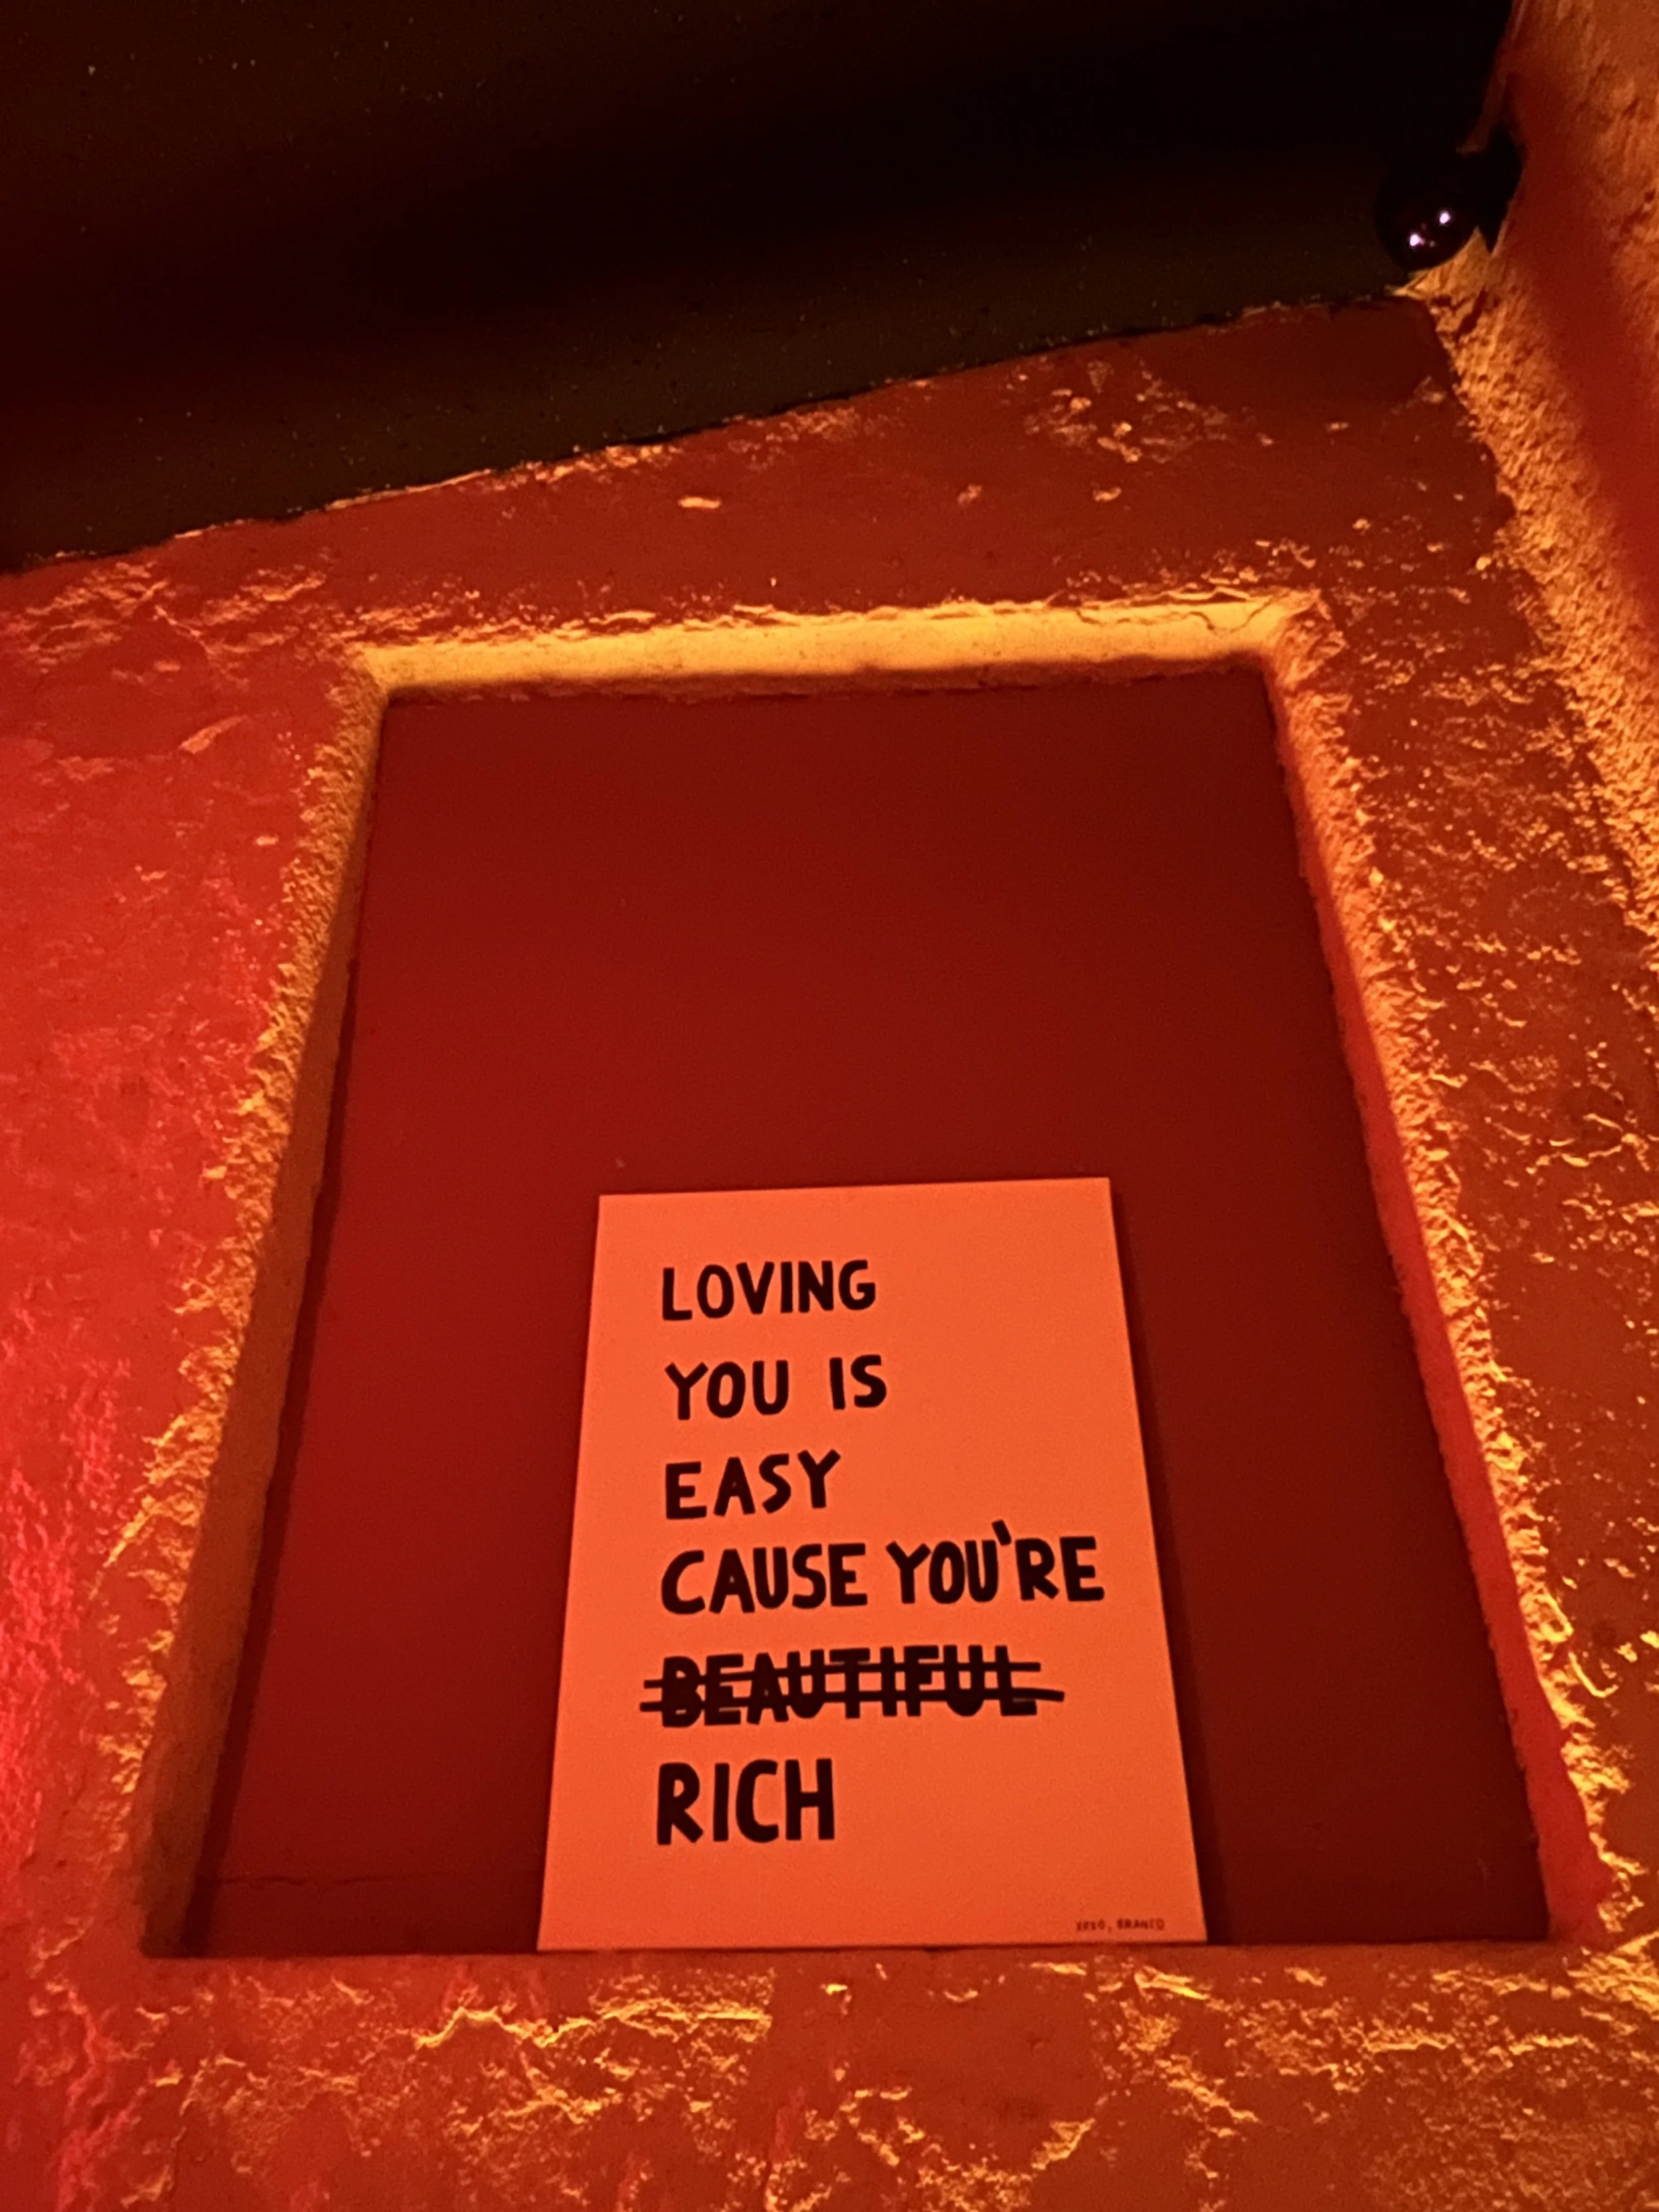 LOVING
YOU IS
EASY
CAUSE YOU'RE
BEAUTIFUL
RICH
XOXO, BRANCO